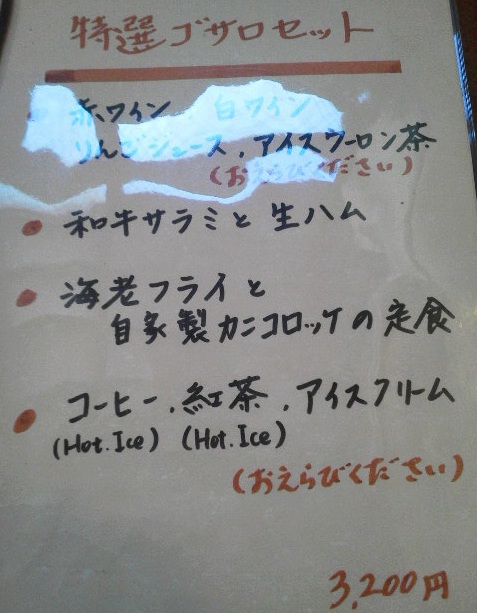 特選ゴサロセット
赤ワイン、白ワイン
りんごジュース、アイスウーロン茶
(おえらびください)
• 和牛サラミと生ハム
• 海老フライと
自家製カニコロッケの定食
• コーヒー、紅茶、アイスクリーム
(Hot.Ice) (Hot.Ice)
(おえらびください)
3,200円